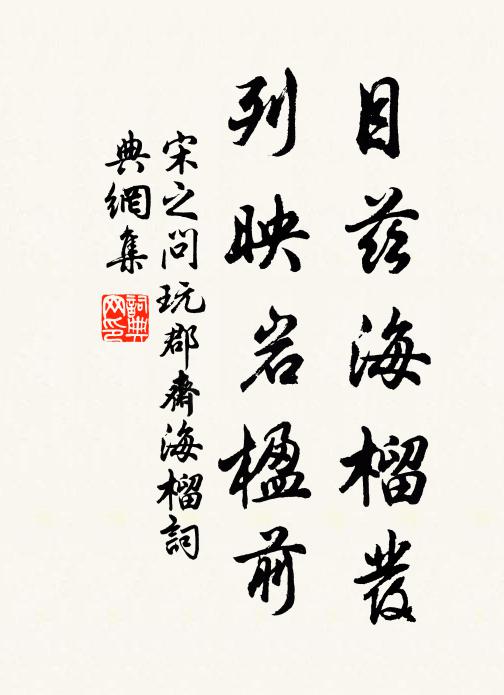 目茲海榴發
列映岩楹前
宋之問玩郡齋海榴詞
典網集
詞典網印